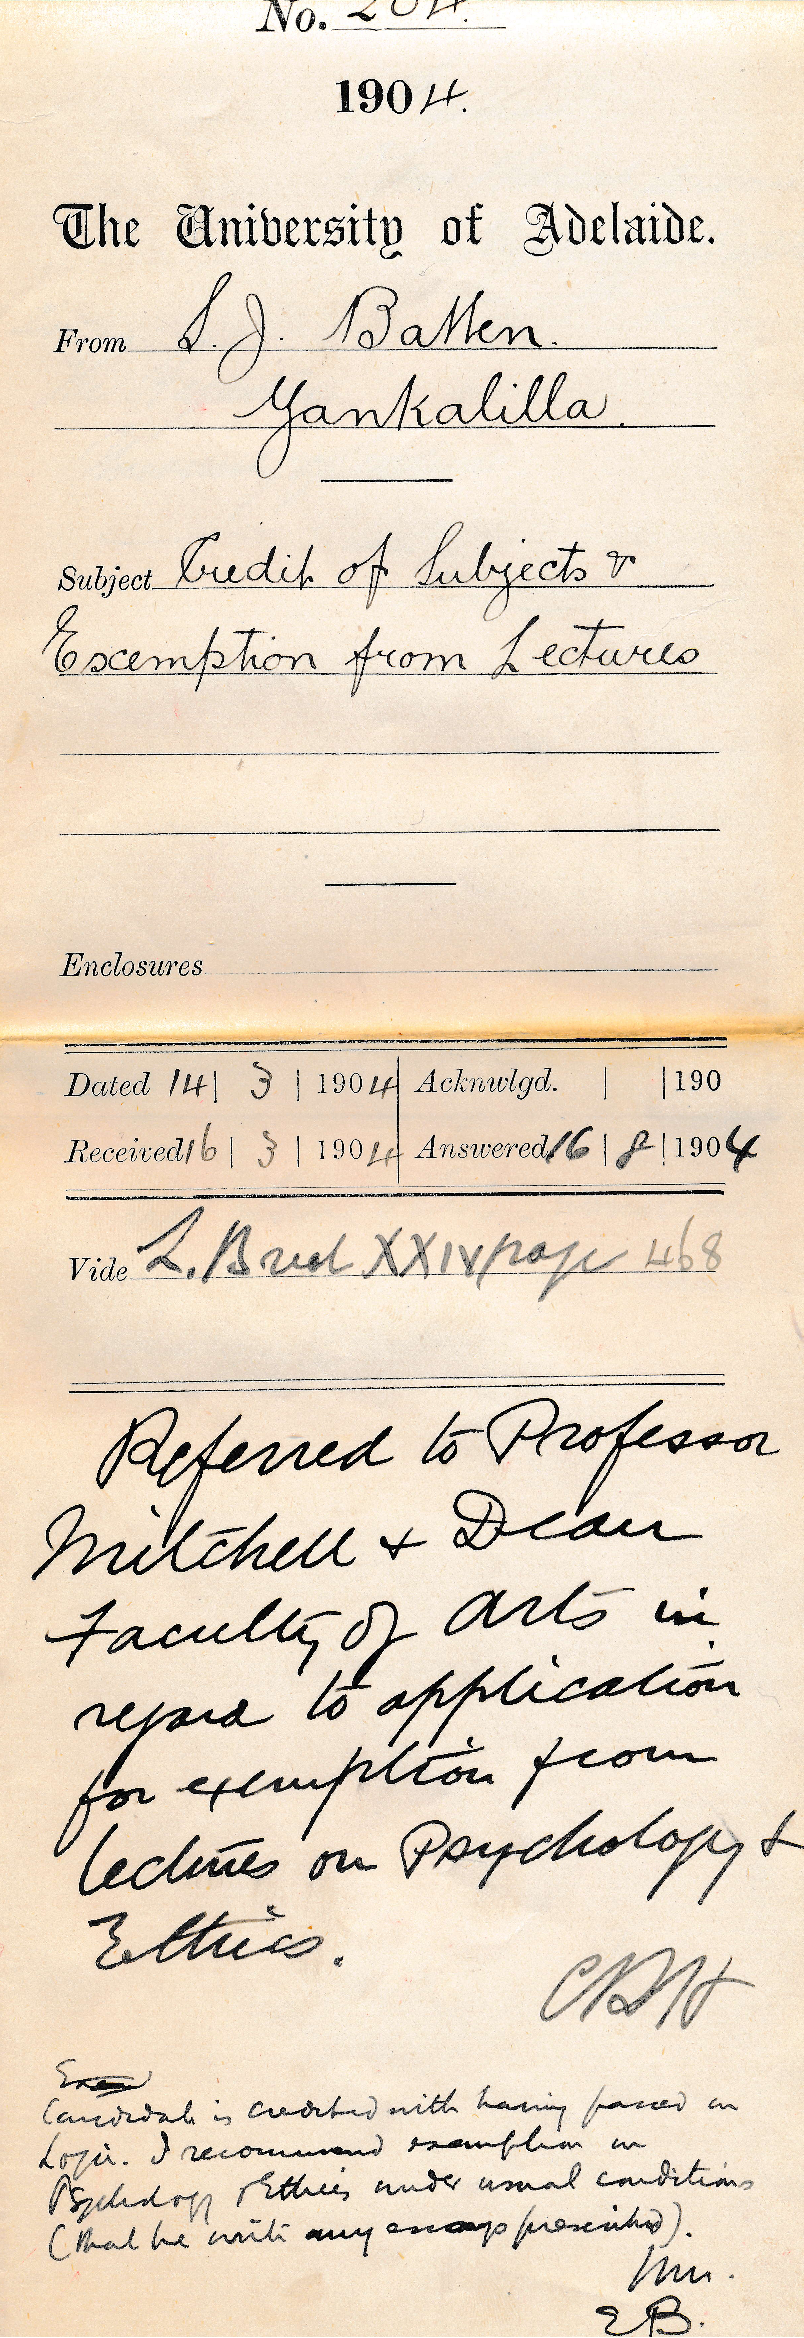 No. 204.
1904.
The University of Adelaide.
From S. J. Batten.
Yankalilla.
Subject Credit of Subjects &
Exemption from Lectures
Enclosures
Dated 14 | 3 | 1904 Acknwlgd. | | 190
Received 16 | 3 | 1904 Answered 16 | 8 | 1904
Vide L. Book XXIV page 468
Referred to Professor
Mitchell & Dean
Faculty of Arts in
regard to application
for exemption from
lectures on Psychology &
Ethics.
Candidate is credited with having passed in
Logic. I recommend exemption in
Psychology & Ethics under usual conditions
(that he write any essays prescribed).
WM.
EB.